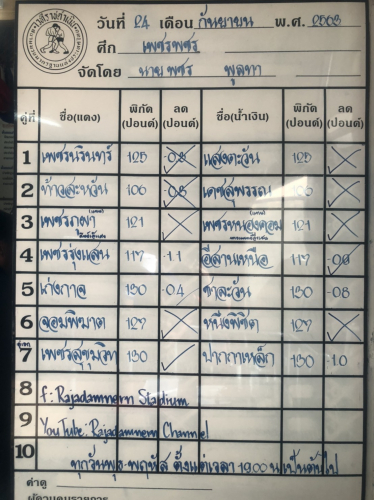 วันที่ 24 เดือน กันยายน พ.ศ. 2563
ศึก เพชรพชร
จัดโดย นายพชร พูลทา
คู่ที่ ชื่อ(แดง) พิกัด (ปอนด์) ลด (ปอนด์) ชื่อ(น้ำเงิน) พิกัด (ปอนด์) ลด (ปอนด์)
1 เพชรนรินทร์ 125 -08 แสงตะวัน 125
2 ท้าวสะหวัน 106 -08 เดชสุพรรณ 106
3 เพชรภูผา 121 เพชรหนองคอม 121
4 เพชรรุ่งแสน 117 -1.1 อีสานเหนือ 117 -00
5 เก่งกาจ 130 -04 ชาละวัน 130 -08
6 จอมพิฆาต 127 หนึ่งพิชิต 127
คู่เอก
7 เพชรสุขุมวิท 130 ปากกาเหล็ก 130 -1.0
8 f: Rajadamnern Stadium
9 YouTube: Rajadamnern Channel
10 ทุกวันพุธ-พฤหัส ตั้งแต่เวลา 19.00 น เป็นต้นไป
ค่าดู